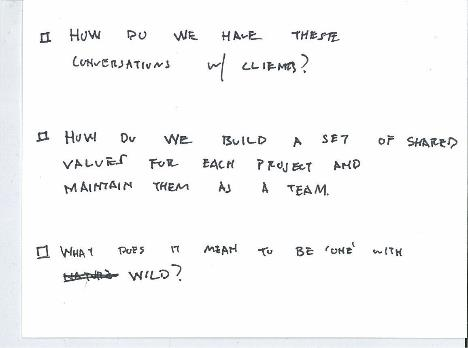 HOW DO WE HAVE THESE
CONVERSATIONS W/ CLIENTS?
HOW DO WE BUILD A SET OF SHARED
VALUES FOR EACH PROJECT AND
MAINTAIN THEM AS A TEAM.
WHAT DOES IT MEAN TO BE 'ONE' WITH
NATURE WILD?